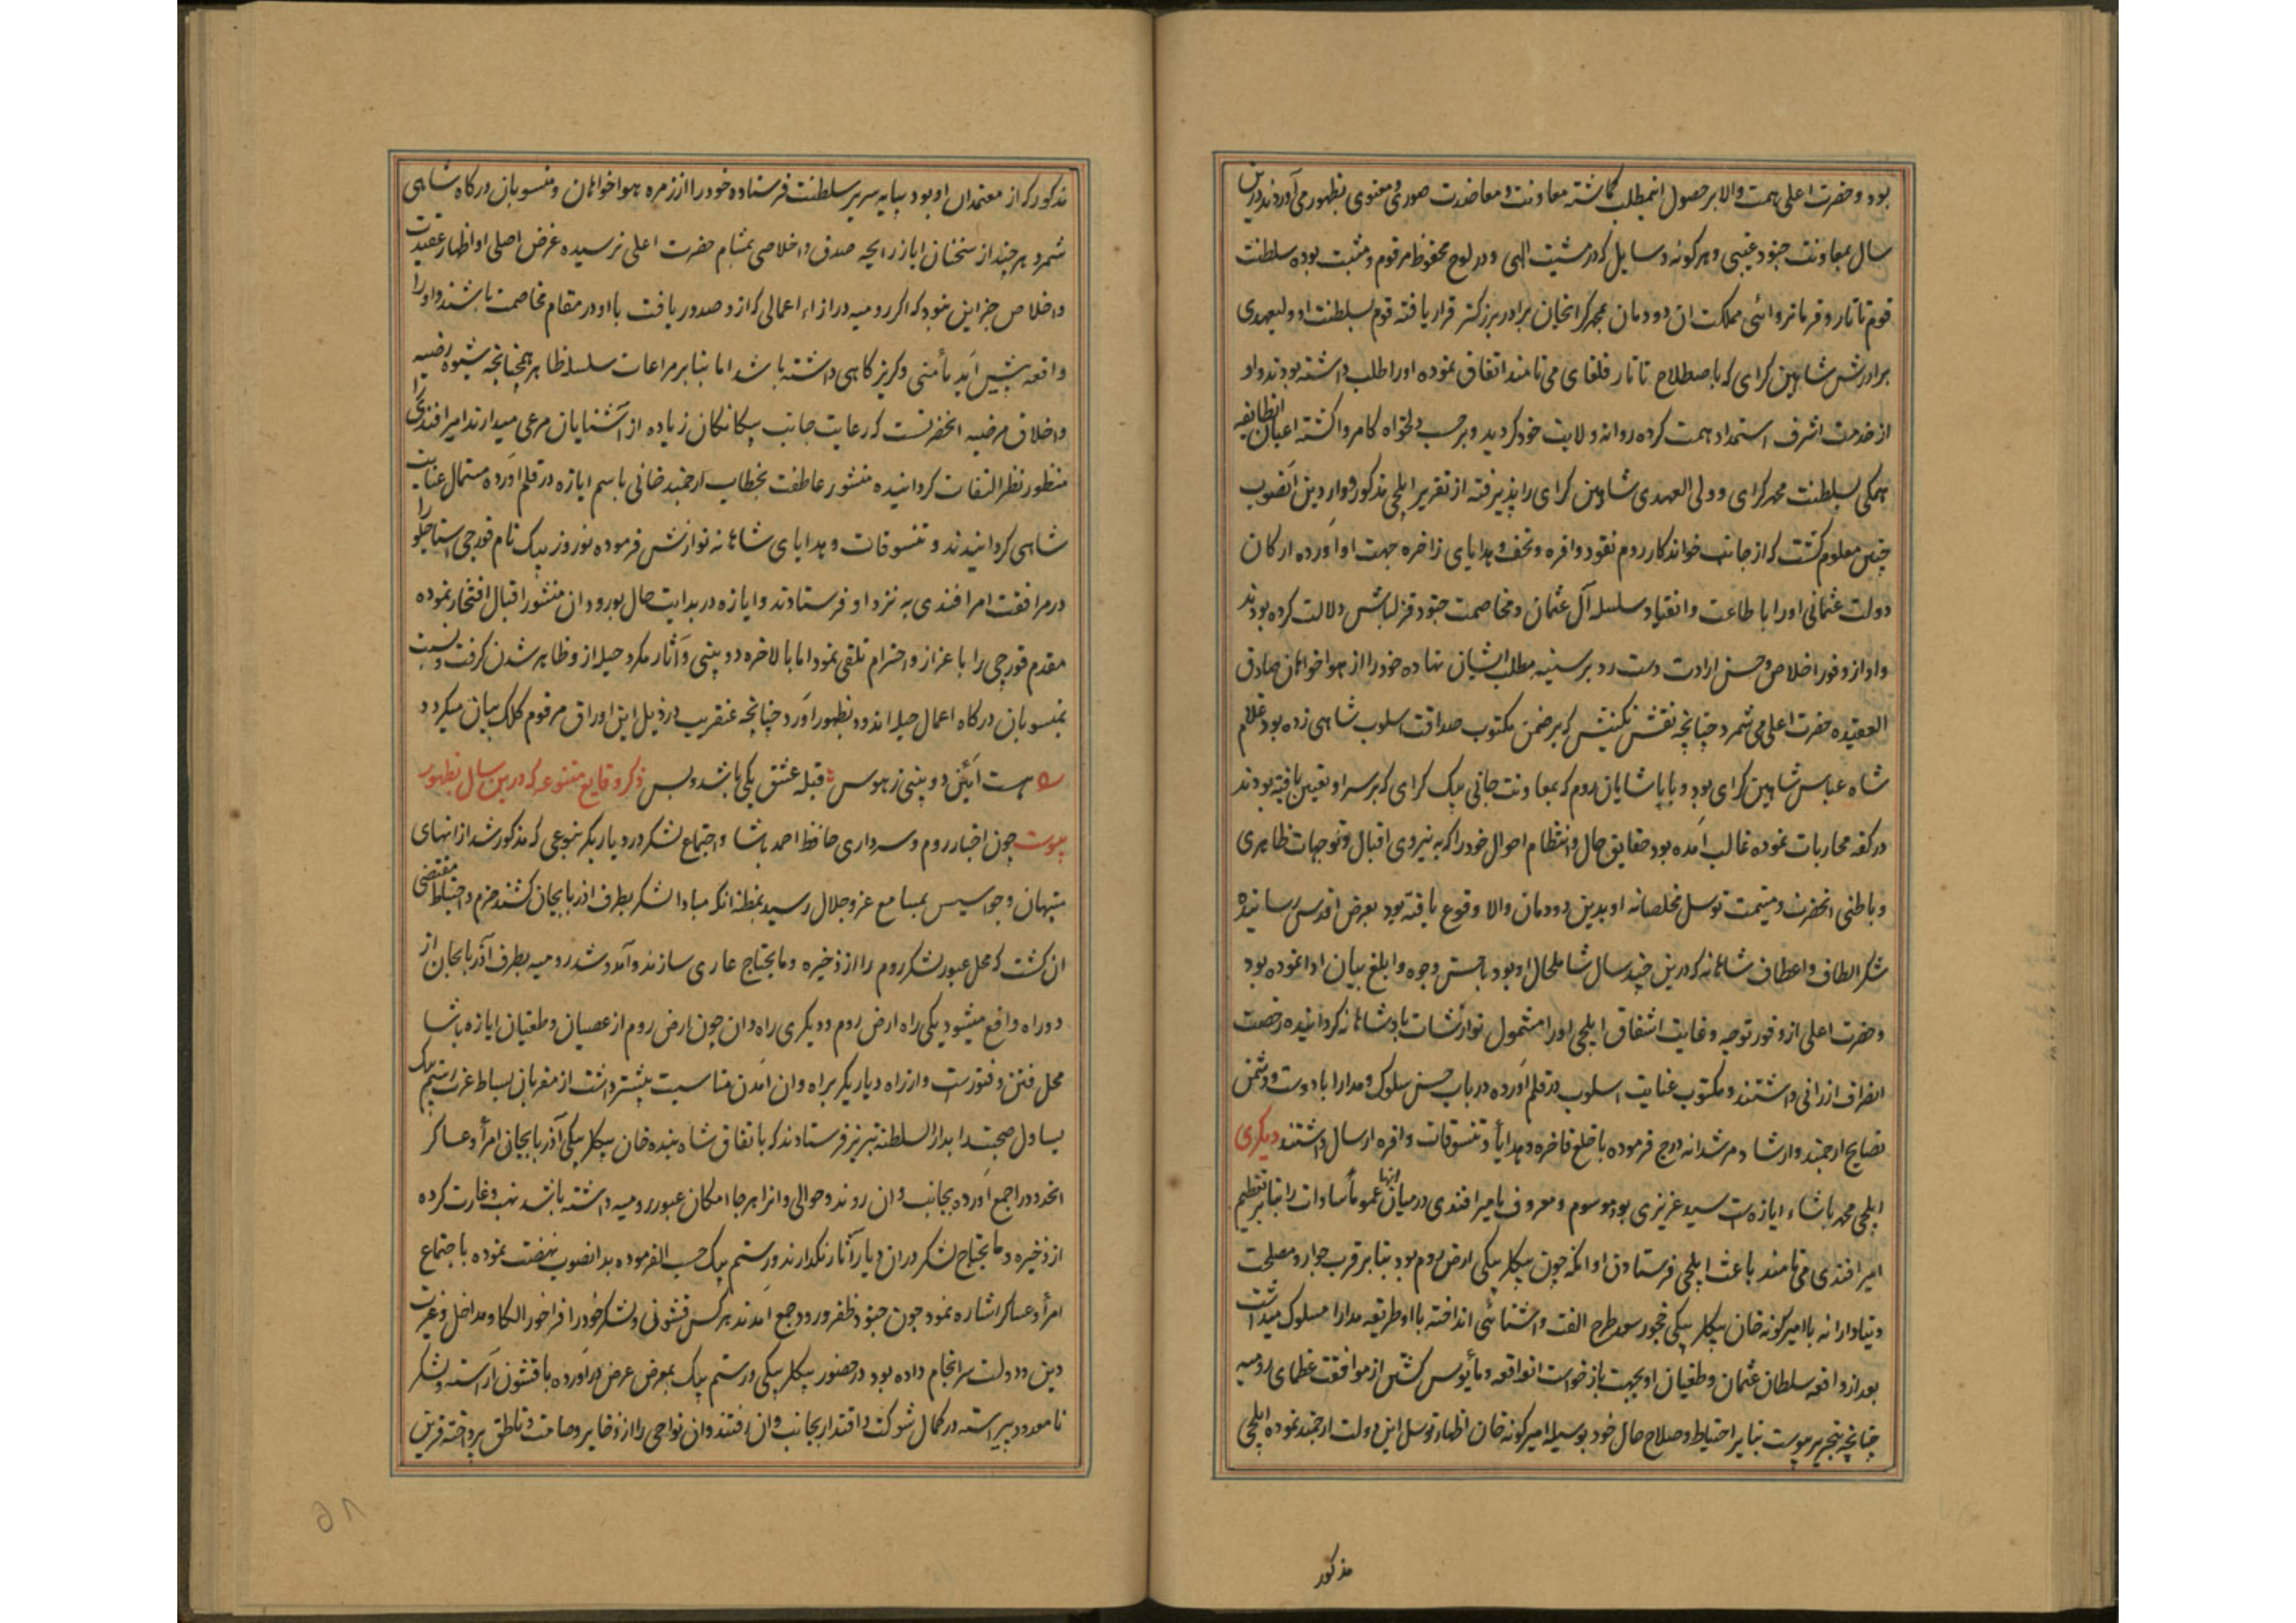 بود و حضرت اعلی همت والا بر حصول اینمطلب کماشته معاونت و معاضدت صوری و معنوی بظهور می آوردند درین
سال بمعاونت جنود غیبی و هر کونه وسایل که در مشیت الهی و در لوح محفوظ مرقوم و مثبت بوده سلطنت
قوم تاتار و فرمانروائی مملکت ان دودمان بمحمد کرایخان برادر بزرکتر قرار یافته قوم بسلطنت او و ولیعهدی
برادرش شاهین کرای که باصطلاح تاتار قلغای می نامند اتفاق نموده او را طلب داشته بودند و او
از خدمت اشرف استمداد همت کرده روانه ولایت خود کردید و بر حسب دلخواه کامروا کشته اعیان انطایفه
همکی بسلطنت محمد کرای و ولی العهدی شاهین کرای را پذیرفته از تقریر ایلچی مذکور و واردین آنصوب
چنین معلوم کشت که از جانب خواندکار روم نقود وافره و تحف و هدایای زاخره جهت او آورده ارکان
دولت عثمانی او را باطاعت و انقیاد سلسله آل عثمان و مخاصمت جنود قزلباش دلالت کرده بودند
و او از وفور اخلاص و حسن ارادت دست رد بر سینه مطلب ایشان نهاده خود را از هواخواهان صادق
العقیده حضرت اعلی می شمرد چنانچه نقش نکینش که بر ضمن مکتوب صداقت اسلوب شاهی زده بود غلام
شاه عباس شاهین کرای بود و با پاشایان روم که بمعاونت جانی بیک کرای که بر سر او تعیین یافته بودند
در کفه محاربات نموده غالب آمده بود حقایق حال و انتظام احوال خود را که به نیروی اقبال و توجهات ظاهری
و باطنی انحضرت و میمنت توسل مخلصانه او بدین دودمان والا وقوع یافته بود بعرض اقدس رسانیده
شکر الطاف و اعطاف شاهانه که درین چند سال شاملحال او بود باحسن وجوه و ابلغ بیان ادا نموده بود
و حضرت اعلی از وفور توجه و غایت اشفاق ایلچی او را مشمول نوازشات بادشاهانه کردانیده رخصت
انصراف ارزانی داشتند و مکتوب عنایت اسلوب در قلم آورده در باب حسن سلوک و مدارا با دوست و دشمن
نصایح ارجمند و ارشاد مرشدانه درج فرموده با خلع فاخره و هدایا و تنسوقات وافره ارسال داشتند دیکری
ایلچی محمد پاشاء ایازه است سید عزیزی بود موسوم و معروف بامیر افندی در میان انها عموماً سادات را بنا بر تعظیم
امیر افندی می نامند باعث ایلچی فرستادن او انکه چون بیکلربیکی ارض روم بود بنا بر قرب جوار و مصلحت
دنیادارانه با امیرکونه خان بیکلربیکی خجور سعد طرح الفت و اشنائی انداخته با او طریقه مدارا مسلوک میداشت
بعد از واقعه سلطان عثمان و طغیان او بجهت بازخواست انواقعه و مأیوس کشتن از موافقت عظمای رومیه
چنانچه بتحریر پیوست بنا بر احتیاط و صلاح حال خود بوسیله امیرکونه خان اظهار توسل این دولت ارجمند نموده ایلچی
مذکور
مذکور که از معتمدان او بود بپایه سریر سلطنت فرستاده خود را از زمره هواخواهان و منسوبان درکاه شاهی
شمرد هر چند از سخنان ایازه رایحه صدق و اخلاصی بمشام حضرت اعلی نرسیده غرض اصلی او از اظهار عقیدت
و اخلاص جز این نبود که اکر رومیه در ازاء اعمالی که از و صدور یافت با او در مقام مخاصمت باشند و او را
واقعه پیش آید مأمنی و کریزکاهی داشته باشد اما بنا بر مراعات سلسله ظاهر همچنانچه شیوه رضیه
و اخلاق مرضیه انحضرتست که رعایت جانب بیکانکان زیاده از آشنایان مرعی میدارند امیر افندی را
منظور نظر التفات کردانیده منشور عاطفت بخطاب ارجمند خانی باسم ایازه در قلم آورده مستمال عنایت
شاهی کردانیدند و تنسوقات و هدایای شاهانه نوازش فرموده نوروز بیک نام قورچی استاجلو را
در مرافقت امیر افندی به نزد او فرستادند و ایازه در بدایت حال بورود ان منشور اقبال افتخار نموده
مقدم قورچی را باعزاز و احترام تلقی نمود اما بالاخره دوبینی و آثار مکر و حیله از و ظاهر شدن کرفت و نسبت
بمنسوبان درکاه اعمال حیله اندود بظهور آورد چنانچه عنقریب در ذیل این اوراق مرقوم کلک بیان میکردد
هست آیئن دوبینی ز هوس قبله عشق یکی باشد و بس ذکر وقایع متنوعه که درین سال بظهور
پیوست چون اخبار روم و سرداری حافظ احمد پاشا و اجتماع لشکر در دیاربکر بنوعی که مذکور شد از انهای
منهیان و جواسیس بمسامع عز و جلال رسید بمظنه انکه مبادا لشکر بطرف اذربایجان کشند حزم و احتیاط مقتضی
ان کشت که محل عبور لشکر روم را از ذخیره و مایحتاج عاری سازند و آمد و شد رومیه بطرف آذربایجان از
دو راه واقع میشود یکی راه ارض روم و دیکری راه وان چون ارض روم از عصیان و طغیان ایازه پاشا
محل فتن و فتورست و از راه دیاربکر براه وان آمدن مناسبت بیشتر داشت از مقربان بساط عزت رستم بیک
یساول صحبت را بدارالسلطنه تبریز فرستادند که باتفاق شاه بنده خان بیکلربیکی آذربایجانی امرأ و عساکر
انحدود را جمع آورده بجانب وان روند و حوالی وانرا هر جا امکان عبور رومیه داشته باشد نهب و غارت کرده
از ذخیره و مایحتاج لشکر در ان دیار آثار نکذارند و رستم بیک حسب الفرموده بدانصوب نهضت نموده باجتماع
امرأ و عساکر اشاره نمود چون جنود ظفر ورود جمع آمدند هر کس قشونی و لشکر خود را فراخور الکا و مداخل و غیرت
دین و دولت سرانجام داده بود در حضور بیکلربیکی و رستم بیک بمعرض عرض در آورده با قشون آراسته و لشکر
نامعدود پیراسته در کمال شوکت و اقتدار بجانب وان رفتند و ان نواحی را از ذخایر و صامت و ناطق پرداخته قرین